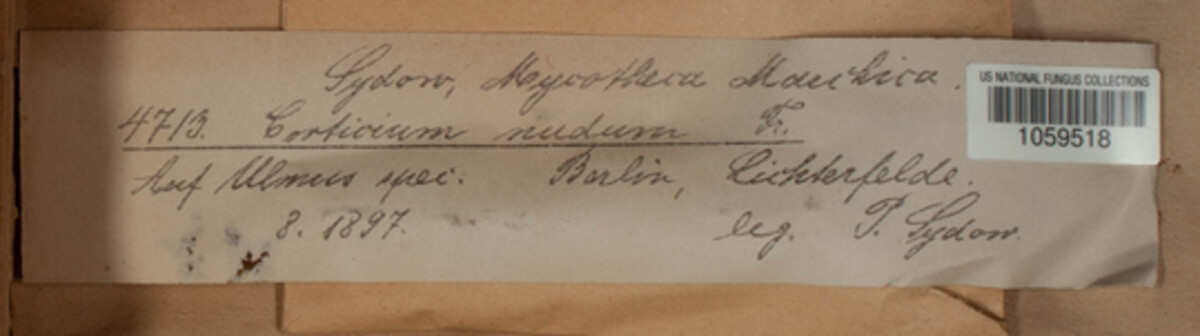 Sydow, Mycotheca Marchica.
4713. Corticium nudum Fr.
Auf Ulmus spec. Berlin, Lichterfelde.
8. 1897. leg. P. Sydow.
US NATIONAL FUNGUS COLLECTIONS
1059518